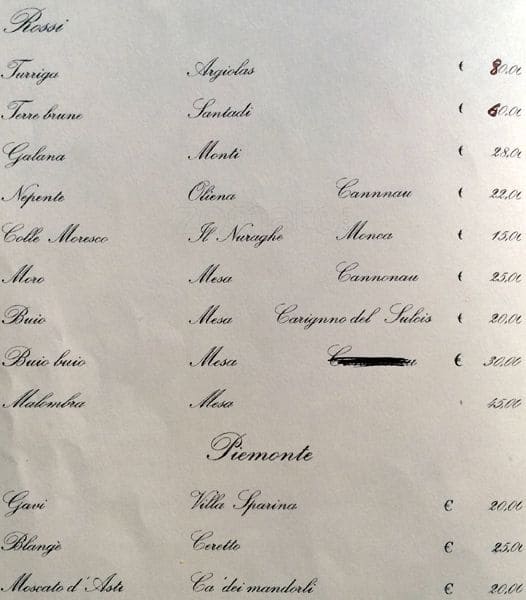 Rossi
Turriga Argiolas € 80.00
Terre brune Santadi € 60.00
Galana Monti € 28.00
Nepente Oliena Cannnau € 22.00
Colle Moresco Il Nuraghe Monca € 15.00
Moro Mesa Cannonau € 25.00
Buio Mesa Carignno del Sulcis € 20.00
Buio buio Mesa € 30.00
Malombra Mesa 45.00
Piemonte
Gavi Villa Sparina € 20.00
Blangè Ceretto € 25.00
Moscato d'Asti Ca' dei mandorli € 20.00